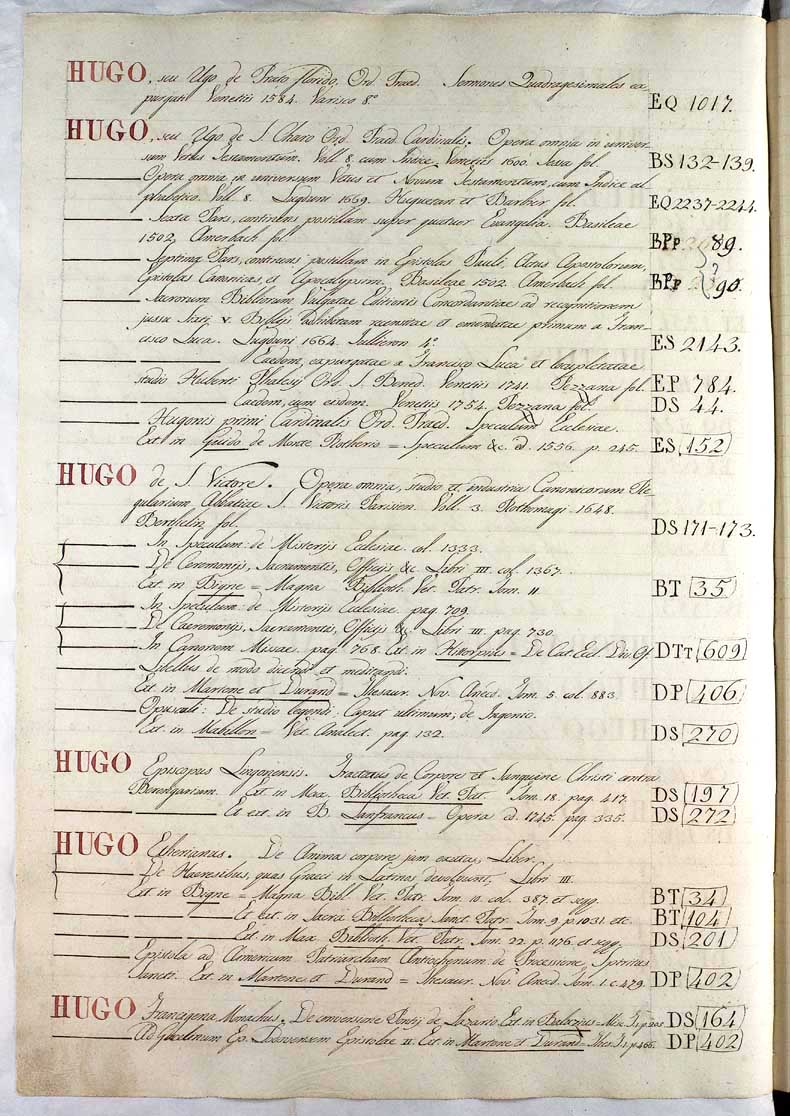 HUGO, seu Ugo de Prato florido, Ord. Praed. Sermones Quadragesimales ex-
purgati Venetiis 1584. Varisco 8.° EQ 1017.
HUGO, seu Ugo de S. Charo Ord. Praed. Cardinalis. Opera omnia in univer-
sum Vetus Testamentum. Voll. 8. cum Indice. Venetiis 1600. Sessa fol. BS 132-139.
Opera omnia in universum Vetus et Novum Testamentum, cum Indice al
phabetico. Voll. 8. Lugduni 1669. Huguetan et Barbier fol. EQ 2237-2244.
Sexta Pars, continens postillam super quatuor Evangelia. Basileae
1502. Amerbach fol. 89.
Septima Pars, continens postillam in Epistolas Pauli, Actus Apostolorum,
Epistolas Canonicas, et Apocalypsim. Basileae 1502. Amerbach fol. 90.
Sacrorum Bibliorum Vulgatae Editionis Concordantiae ad recognitionem
jussu Sixti V. Bibliis adhibitam recensitae et emendatae primum a Fran-
cisco Luca. Lugduni 1664. Jullieron 4.° ES 2143.
Eaedem, expurgatae a Francisco Luca et locupletatae
studio Huberti Phalesii Ord. S. Bened. Venetiis 1741. Pezzana fol. EP 784.
Eaedem, cum eisdem. Venetiis 1754. Pezzana fol. DS 44.
Hugonis primi Cardinalis Ord. Praed. Speculum Ecclesiae.
Ext. in Guido de Monte Rotherio = Speculum &c. ed. 1556. p. 245. ES 152
HUGO de S. Victore. Opera omnia, studio et industria Canonicorum Re
gularium Abbatiae S. Victoris Parisien. Voll. 3. Rothomagi 1648.
Berthelin fol. DS 171-173.
In Speculum de Misterijs Ecclesiae. col. 1333.
De Ceremonijs, Sacramentis, Officijs &c Libri III. col. 1367.
Ext. in Bigne = Magna Biblioth. Vet. Patr. Tom. 11 BT 35
In Speculum de Misterijs Ecclesiae. pag. 709.
De Caeremonijs, Sacramentis, Officijs &c. Libri III. pag. 730.
In Canonem Missae. pag. 768. Ext. in Hittorpius = De Cat. Eccl. Div. Of. DTt 609
Libellus de modo dicendi et meditandi.
Ext. in Martene et Durand = Thesaur. Nov. Anecd. Tom. 5. col. 883. DP 406
Opusculi: De studio legendi: Caput ultimum, de Ingenio.
Ext. in Mabillon = Vet. Analect. pag. 132. DS 270
HUGO Episcopus Lingonensis. Tractatus de Corpore et Sanguine Christi contra
Berengarium. Ext. in Max. Bibliotheca Vet. Pat. Tom. 18. pag. 417. DS 197
Et ext. in B. Lanfrancus = Opera ed. 1745. pag. 335. DS 272
HUGO Etherianus. De Anima corpore jam exuta, Liber.
De Haeresibus, quas Graeci in Latinos devolvunt, Libri III.
Ext. in Bigne = Magna Bibl. Vet. Patr. Tom. 10. col. 387. et segg. BT 34
Et ext. in Sacra Bibliotheca Sanct. Patr. Tom. 9. p. 1031. etc. BT 104
Ext. in Max. Biblioth. Vet. Patr. Tom. 22. p. 1176. et segg. DS 201
Epistola ad Americum Patriarcham Antiochenum de Processione Spiritus
Sancti. Ext. in Martene et Durand = Thesaur. Nov. Anecd. Tom. 1. c. 479. DP 402
HUGO Francigena Monachus. De conversione Pontij de Lazario Ext. in Baluzius = Misc. T. 1. p. 205 DS 164
Ad Guillelmum Ep. Epistolae II. Ext. in Martene et Durand = Thes. T. 1. p. 466. DP 402